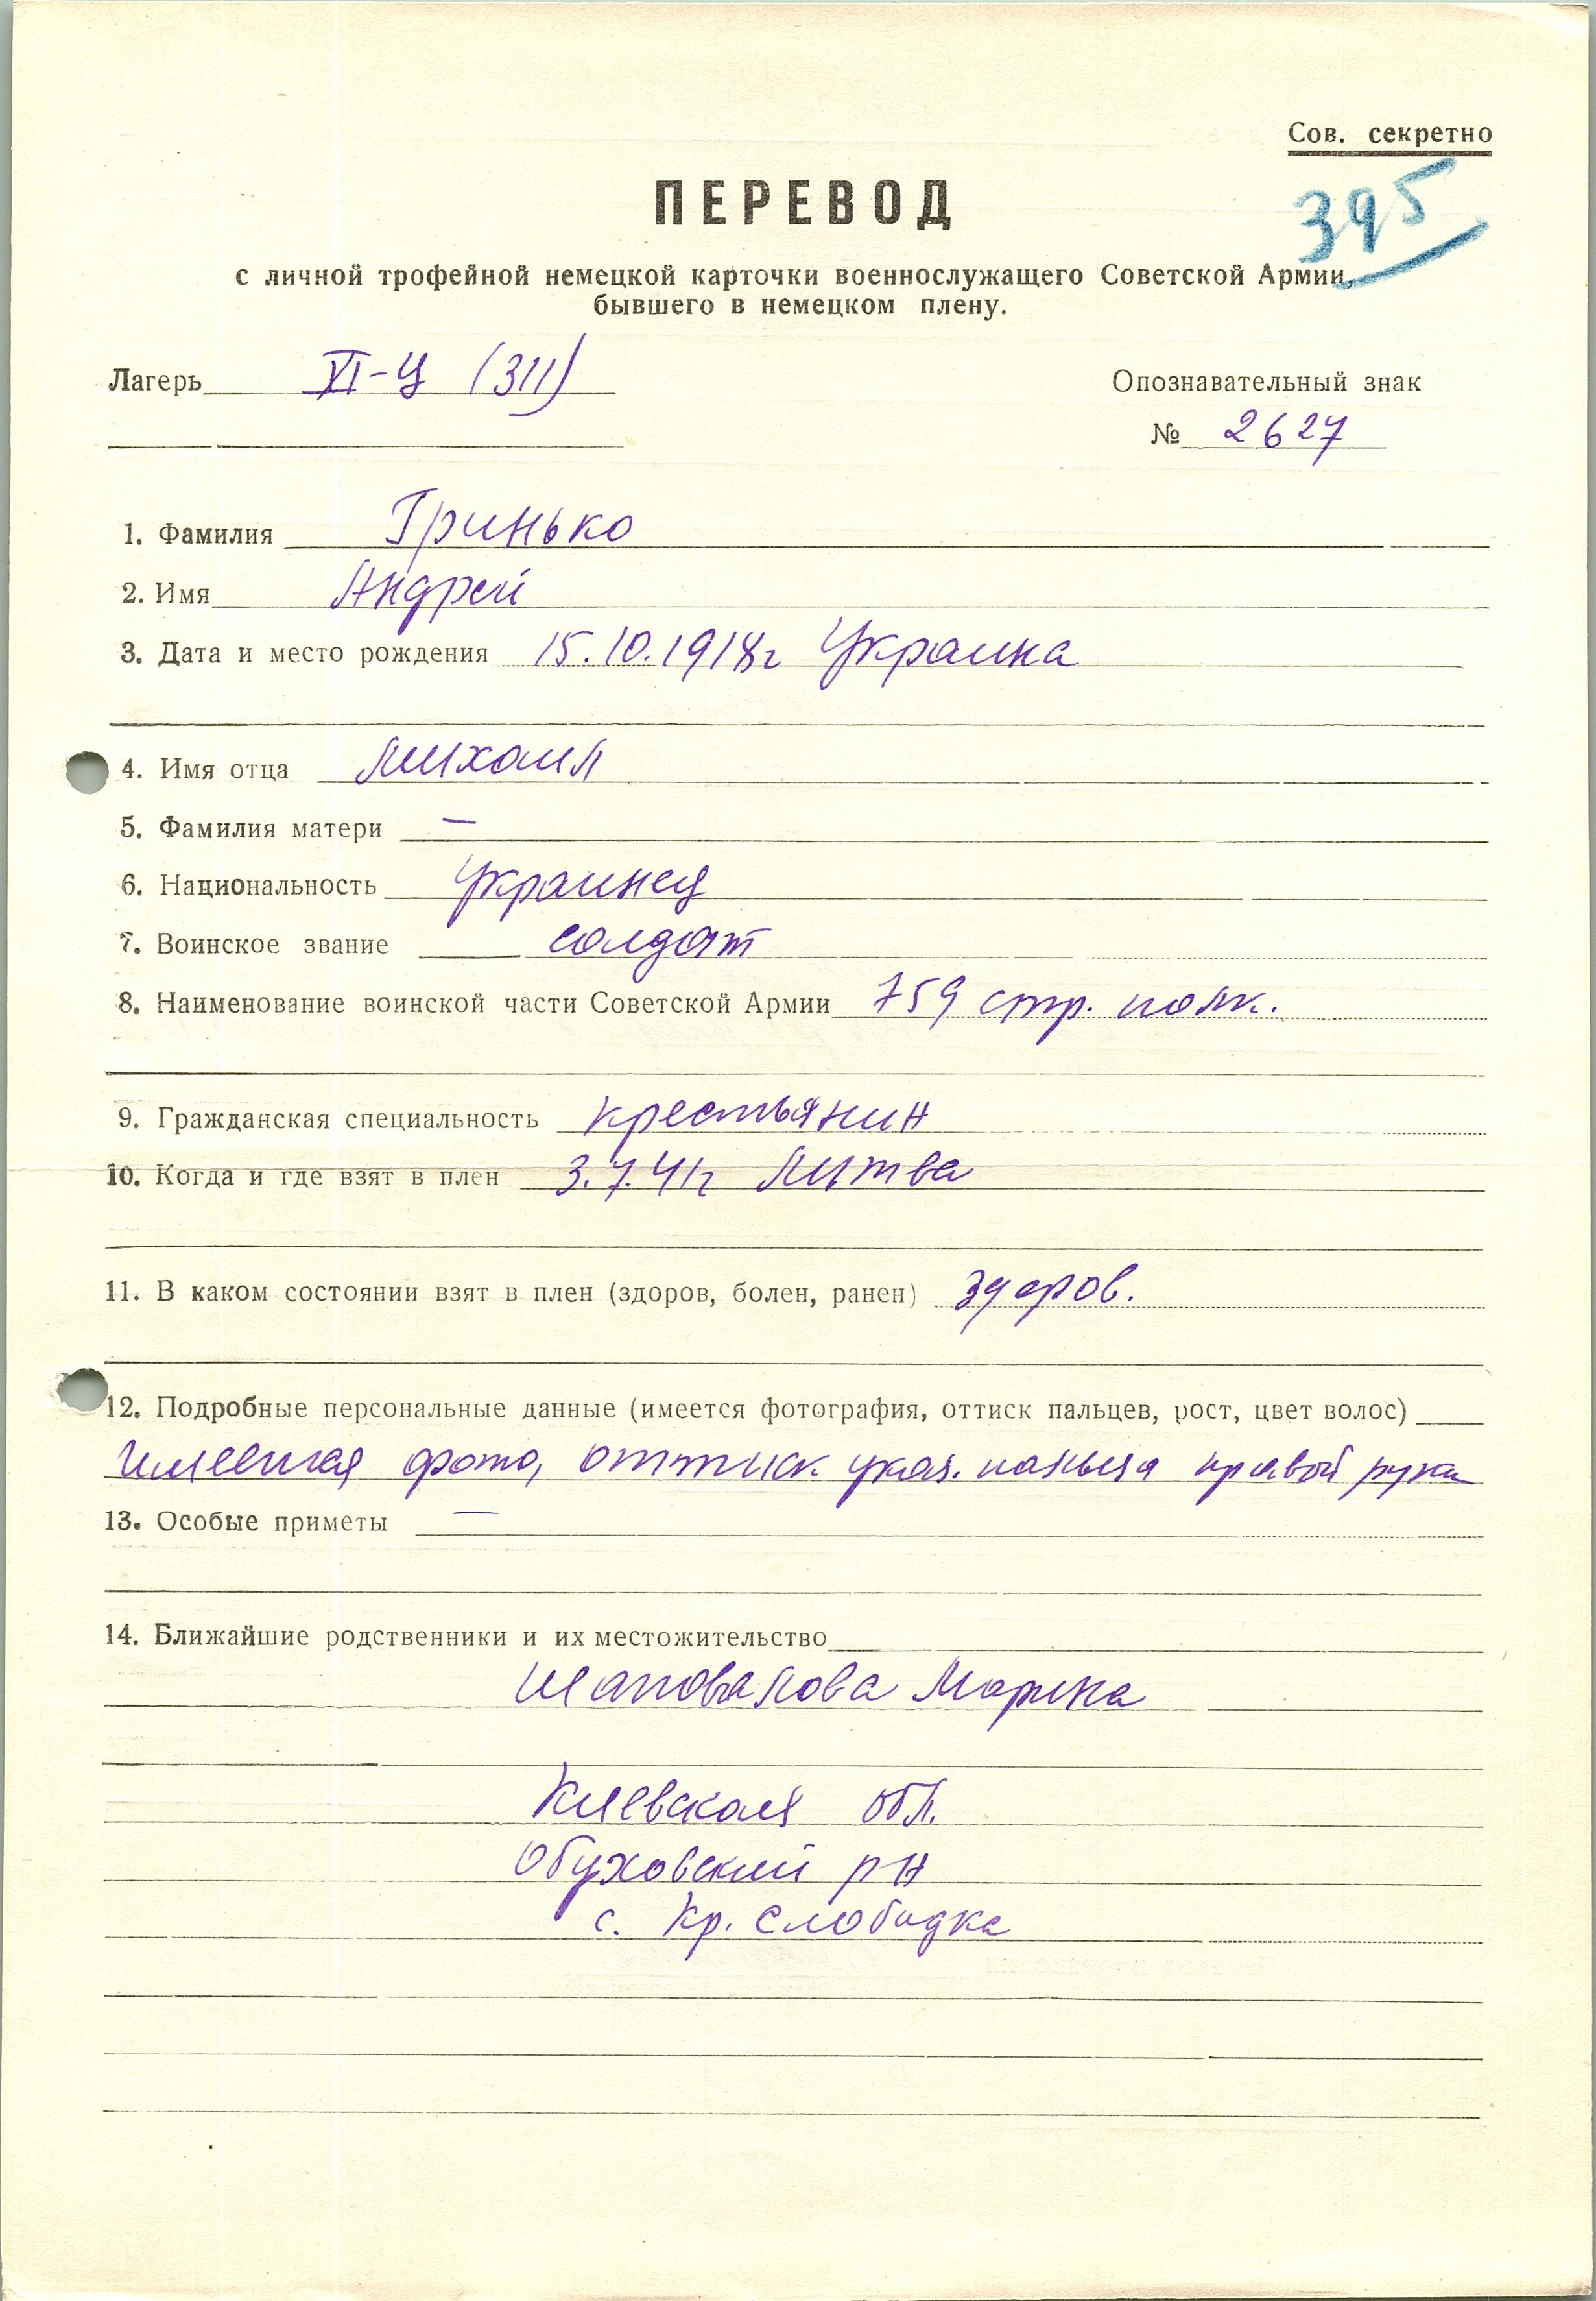 Сов. секретно
395
ПЕРЕВОД
с личной трофейной немецкой карточки военнослужащего Советской Армии,
бывшего в немецком плену.
Лагерь VI-Ц (311)
Опознавательный знак
№ 2627
1. Фамилия Гринько
2. Имя Андрей
3. Дата и место рождения 15.10.1918г Украина
4. Имя отца Михаил
5. Фамилия матери —
6. Национальность Украинец
7. Воинское звание солдат
8. Наименование воинской части Советской Армии 759 стр. полк.
9. Гражданская специальность крестьянин
10. Когда и где взят в плен 3.7.41г Литва
11. В каком состоянии взят в плен (здоров, болен, ранен) здоров.
12. Подробные персональные данные (имеется фотография, оттиск пальцев, рост, цвет волос)
Имеется фото, оттиск указ. пальца правой руки
13. Особые приметы —
14. Ближайшие родственники и их местожительство
Шаповалова Марина
Киевская обл.
Обуховский рн
с. Кр. Слободка